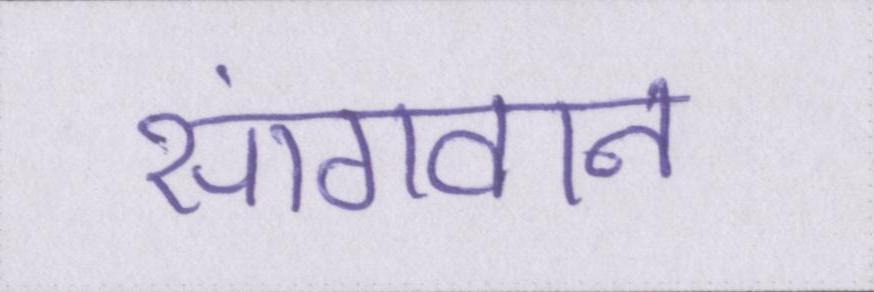 सांगवान